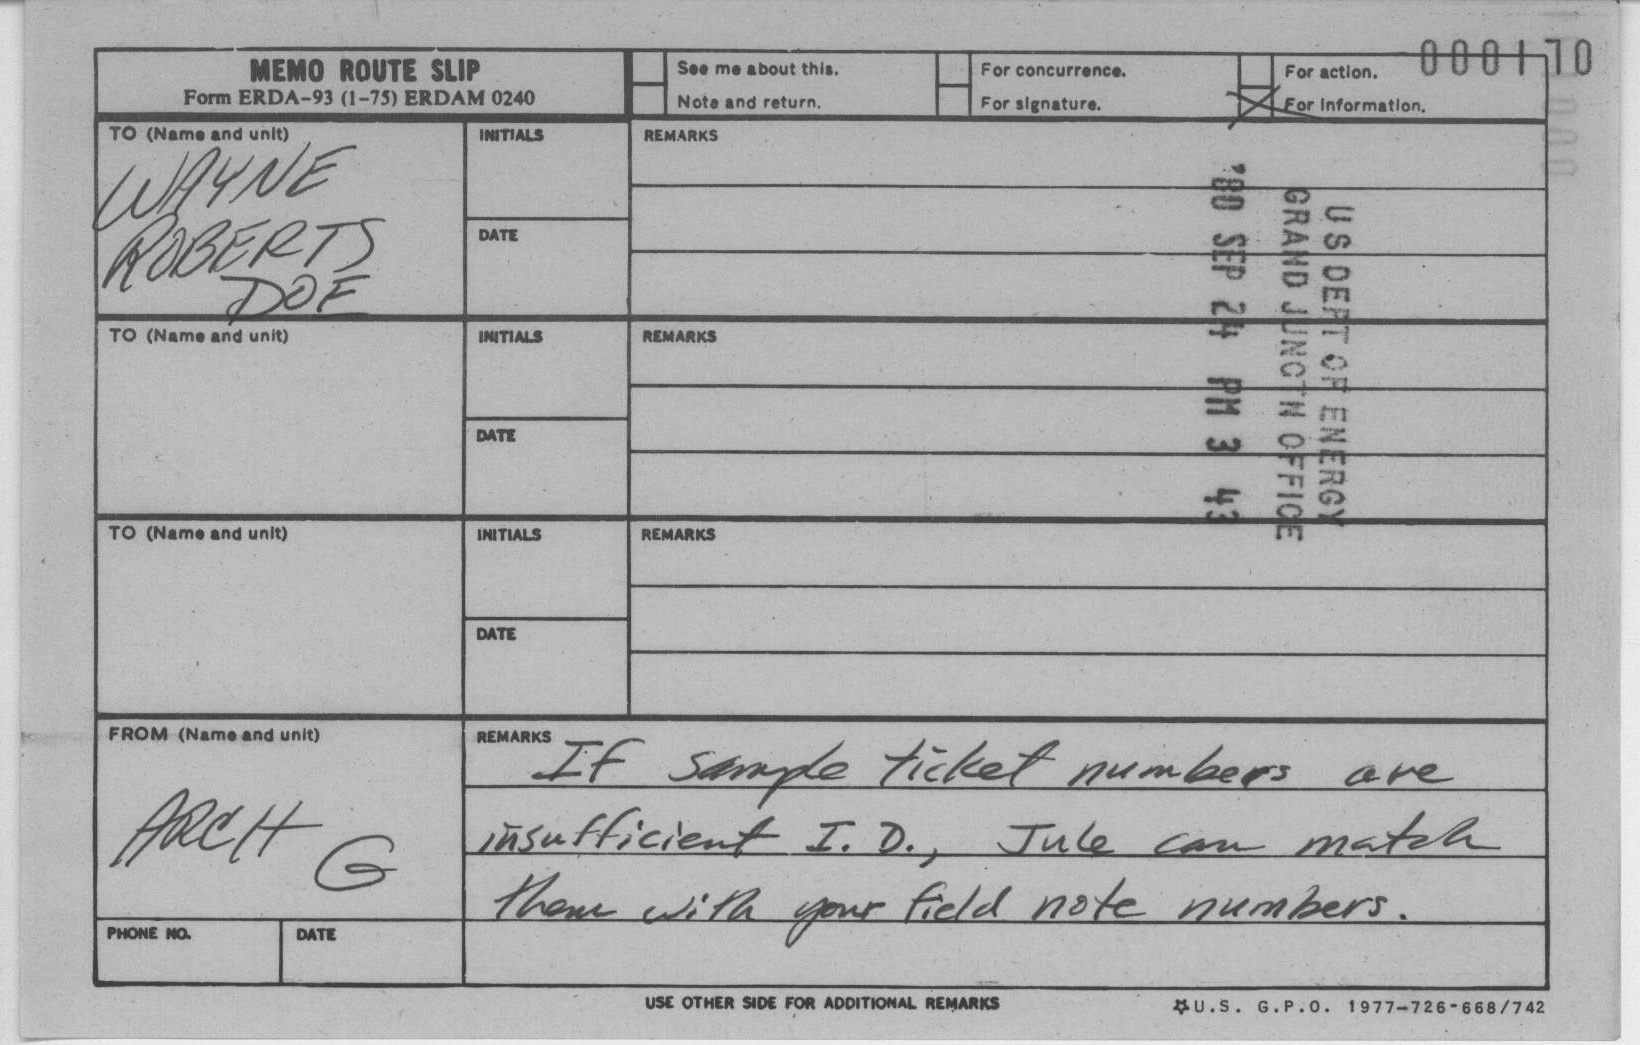 000170
MEMO ROUTE SLIP
Form ERDA-93 (1-75) ERDAM 0240
See me about this.
Note and return.
For concurrence.
For signature.
For action.
For information.
TO (Name and unit)
WAYNE
ROBERTS
DOE
INITIALS
DATE
REMARKS
TO (Name and unit)
INITIALS
DATE
REMARKS
TO (Name and unit)
INITIALS
DATE
REMARKS
US DEPT OF ENERGY
GRAND JUNCT'N OFFICE
'80 SEP 24 PM 3 43
FROM (Name and unit)
ARCH G
PHONE NO.
DATE
REMARKS
If sample ticket numbers are
insufficient I.D., Jule can match
them with your field note numbers.
USE OTHER SIDE FOR ADDITIONAL REMARKS
☆U.S. G.P.O. 1977-726-668/742